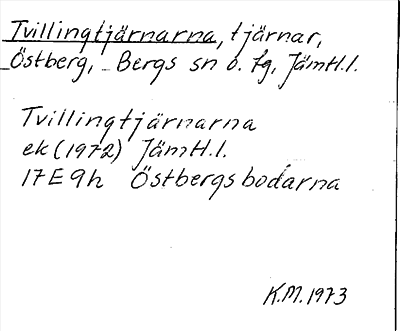 Tvillingtjärnarna, tjärnar,
Östberg, Bergs sn o. fg, JämtH.l.
Tvillingtjärnarna
ek (1972) JämtH.l.
17E9h Östbergsbodarna
K.M. 1973